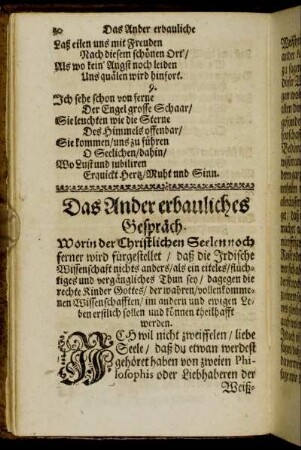 80 Das Ander erbauliche
Laß eilen uns mit Freuden
Nach diesem schönen Ort/
Als wo kein Angst noch leiden
Uns quälen wird hinfort.
9.
Ich sehe schon von ferne
Der Engel grosse Schaar/
Sie leuchten wie die Sterne
Des Himmels offenbar/
Sie kommen/uns zu führen
O Seelichen/dahin/
Wo Lust und jubiliren
Erquickt Hertz/Muht und Sinn.
Das Ander erbauliches
Gespräch.
Worin der Christlichen Seelen noch
ferner wird fürgestellet / daß die Irdische
Wissenschaft nichts anders/als ein eiteles/flüch-
tiges und vergängliches Thun sey/ dagegen die
rechte Kinder Gottes/ der wahren/vollenkomme-
nen Wissenschafften/ im andern und ewigen Le-
ben erstlich sollen und können theilhafft
werden.
ICH wil nicht zweiffelen/ liebe
Seele/ daß du etwan werdest
gehöret haben von zweien Phi-
losophis oder Liebhaberen der
Weiß-